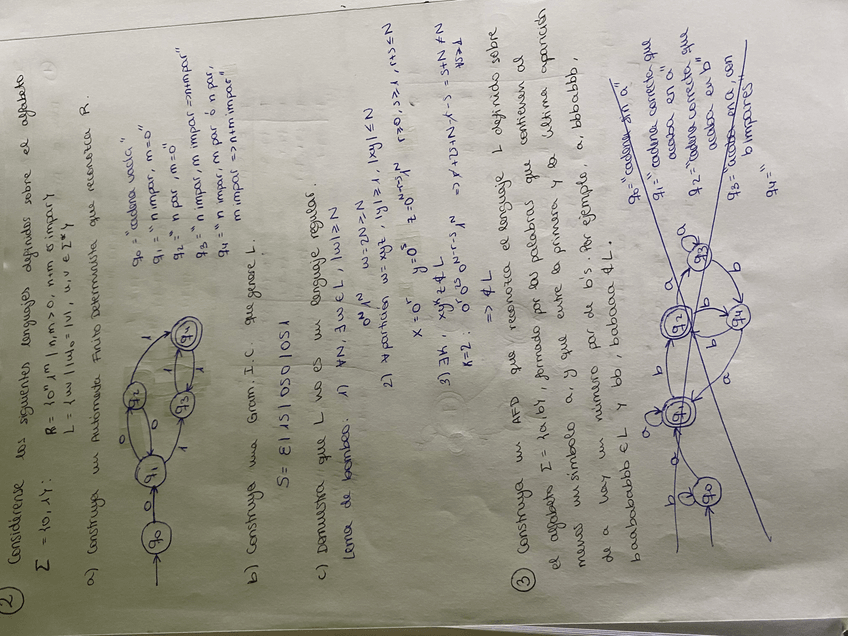 ② Considérense los siguientes lenguajes definidos sobre el alfabeto
Σ = {0, 1}:
R = {0ⁿ1ᵐ | n,m>0, n+m es impar}
L = {uv | |u|₀ = |v|₁, u,v ∈ Σ*}
a) Construya un Autómata Finito Determinista que reconozca R.
q0
0
q1
0
0
q2
1
1
q3
1
1
q4
q0 = "cadena vacía"
q1 = "n impar, m=0"
q2 = "n par, m=0"
q3 = "n impar, m impar => n+m par"
q4 = "n impar, m par ó n par,
m impar" => n+m impar"
b) Construya una Gram. I.C. que genere L.
S = ε | 1S | 0S0 | 0S1
c) Demuestra que L no es un lenguaje regular.
Lema de bombeo: 1) ∀N, ∃ w ∈ L, |w| ≥ N
0ᴺ1ᴺ w = 2N ≥ N
2) ∀ partición w = xyz, |y| ≥ 1, |xy| ≤ N
x = 0ʳ y = 0ˢ z = 0ᴺ⁻ʳ⁻ˢ1ᴺ r≥0, s≥1, r+s≤N
3) ∃k, xyᵏz ∉ L
k=2:
=> ∉ L
③ Construya un AFD que reconozca el lenguaje L definido sobre
el alfabeto Σ = {a,b}, formado por las palabras que contienen al
menos un símbolo a, y que entre la primera y la última aparición
de a hay un número par de b's. Por ejemplo, a, bbbabbb,
baabababbb ∈ L y bb, babaaa ∉ L.
b
q0
a
a
q1
b
q2
a
a
q3
b
b
b
q4
a
q0 = "cadena sin a"
q1 = "cadena correcta que
acaba en a"
q2 = "cadena correcta que
acaba en b"
q3 = "acaba en a, con
b impares"
q4 = "